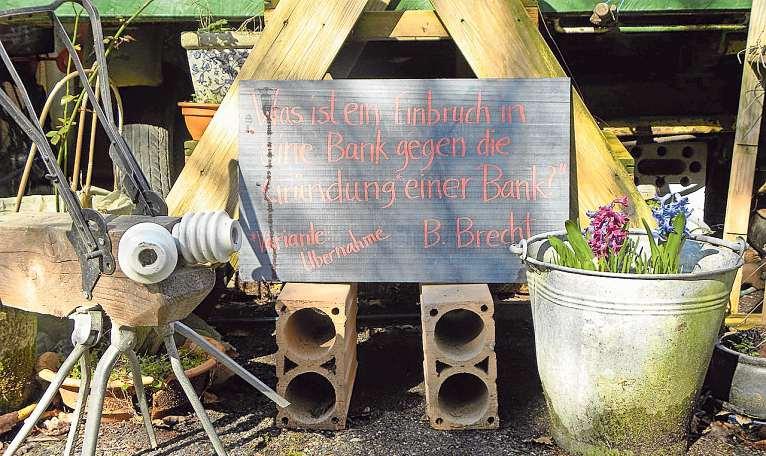 „Was ist ein Einbruch in
eine Bank gegen die
Gründung einer Bank?"
"Variante B. Brecht
Übernahme